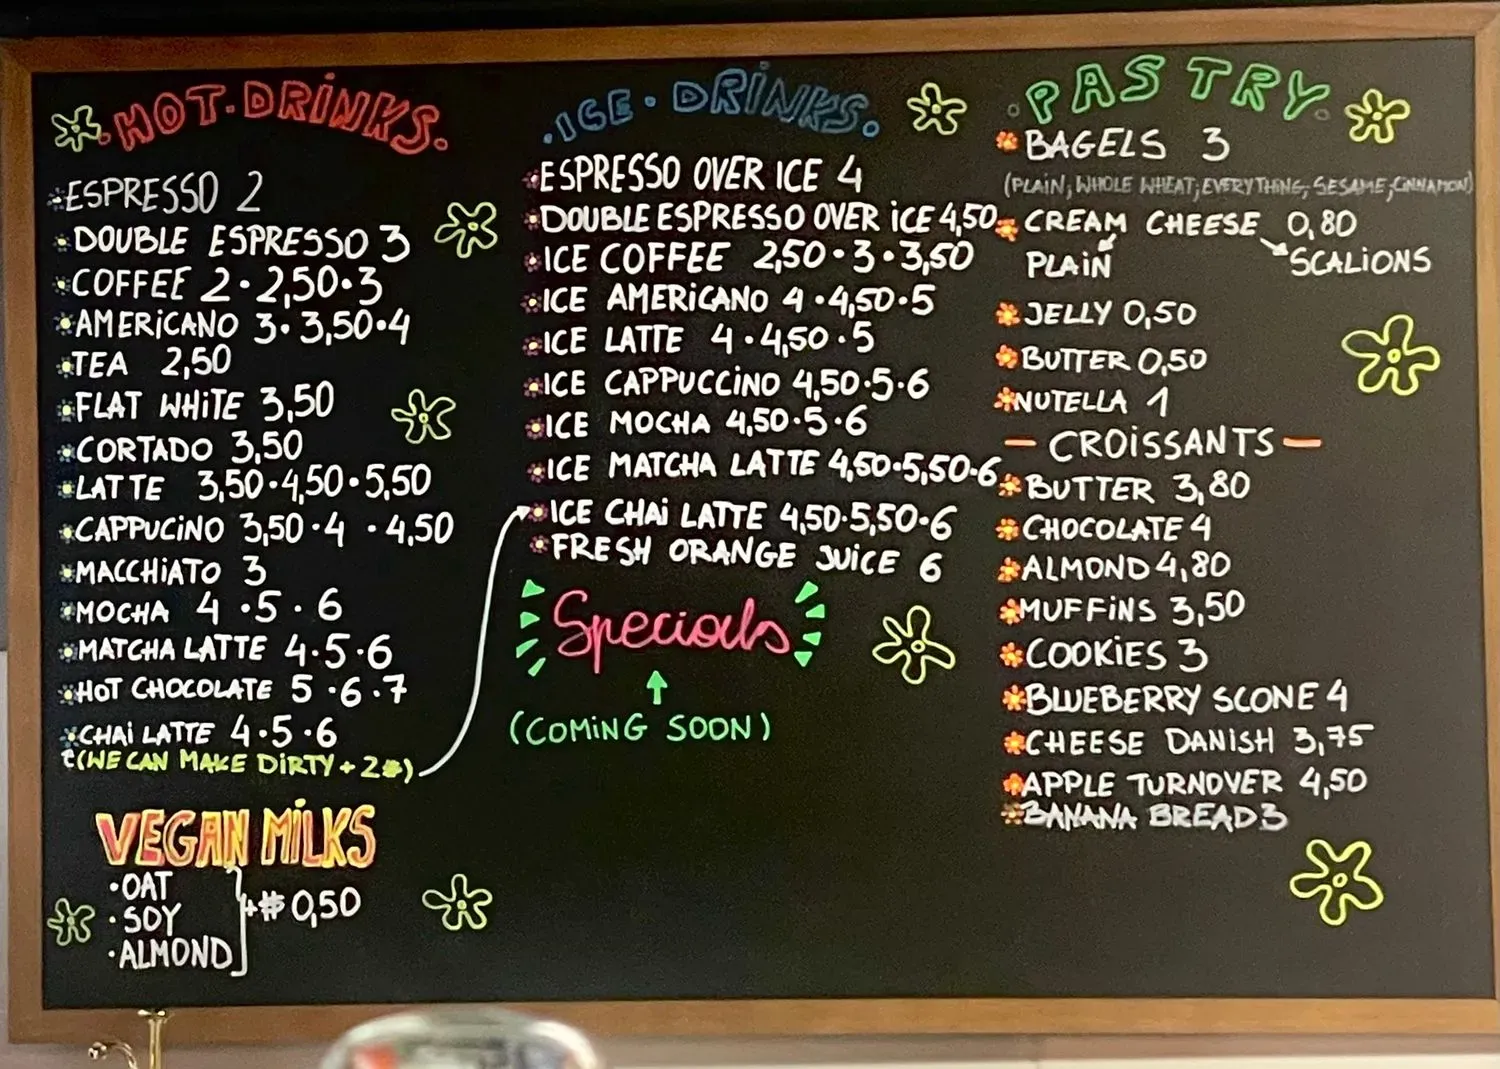 HOT·DRiNKS.
ESPRESSO 2
DOUBLE ESPRESSO 3
COFFEE 2·2,50·3
AMERiCANO 3·3,50·4
TEA 2,50
FLAT WHiTE 3,50
CORTADO 3,50
LATTE 3,50·4,50·5,50
CAPPUCiNO 3,50·4·4,50
MACCHiATO 3
MOCHA 4·5·6
MATCHA LATTE 4·5·6
HOT CHOCOLATE 5·6·7
CHAi LATTE 4·5·6
(WE CAN MAKE DiRTY + 2$)
VEGAN MiLKS
·OAT
·SOY
·ALMOND
+$ 0,50
.ICE·DRiNKS.
ESPRESSO OVER ICE 4
DOUBLE ESPRESSO OVER iCE 4,50
ICE COFFEE 2,50·3·3,50
ICE AMERiCANO 4·4,50·5
ICE LATTE 4·4,50·5
ICE CAPPUCCiNO 4,50·5·6
ICE MOCHA 4,50·5·6
ICE MATCHA LATTE 4,50·5,50·6
ICE CHAi LATTE 4,50·5,50·6
FRESH ORANGE JUICE 6
Specials
(COMiNG SOON)
.PASTRY.
BAGELS 3
(PLAiN, WHOLE WHEAT, EVERYTHING, SESAME, CiNNAMON)
CREAM CHEESE 0,80
PLAiN SCALIONS
JELLY 0,50
BUTTER 0,50
NUTELLA 1
— CROiSSANTS —
BUTTER 3,80
CHOCOLATE 4
ALMOND 4,80
MUFFiNS 3,50
COOKiES 3
BLUEBERRY SCONE 4
CHEESE DANiSH 3,75
APPLE TURNOVER 4,50
BANANA BREAD 3